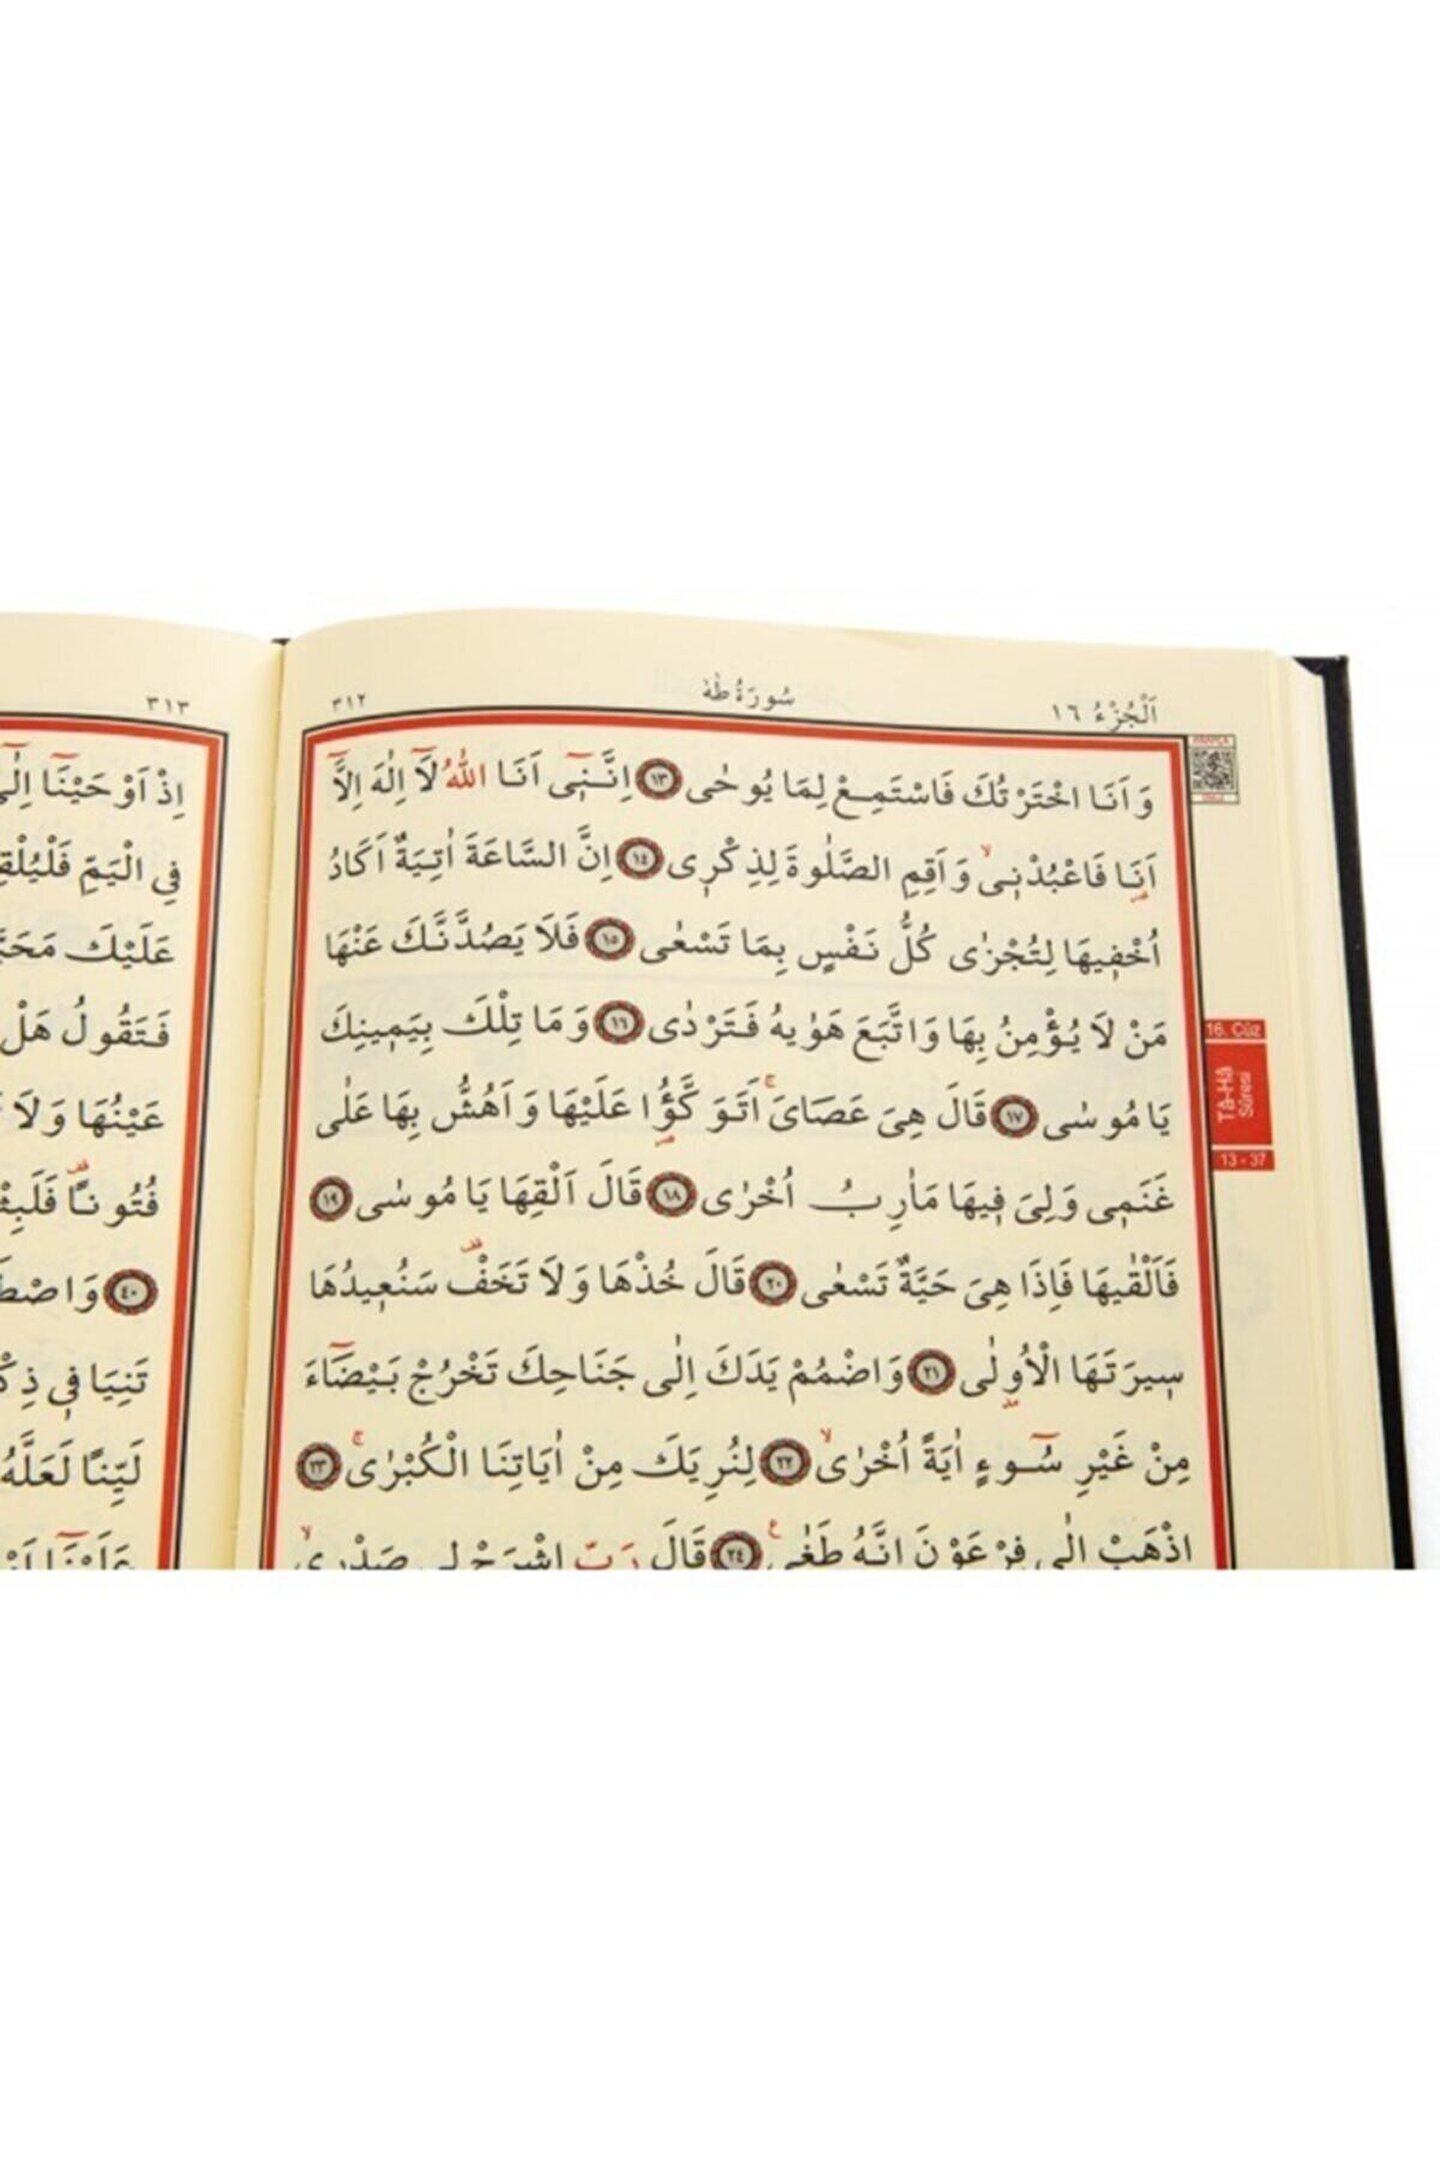 اَلْجُزْءُ ١٦
سُورَةُ طٰهٰ
٣١٢
وَاَنَا اخْتَرْتُكَ فَاسْتَمِعْ لِمَا يُوحٰى ﴿١٣﴾ اِنَّنٖٓى اَنَا اللّٰهُ لَٓا اِلٰهَ اِلَّٓا
اَنَا فَاعْبُدْنٖىۙ وَاَقِمِ الصَّلٰوةَ لِذِكْرٖى ﴿١٤﴾ اِنَّ السَّاعَةَ اٰتِيَةٌ اَكَادُ
اُخْفٖيهَا لِتُجْزٰى كُلُّ نَفْسٍ بِمَا تَسْعٰى ﴿١٥﴾ فَلَا يَصُدَّنَّكَ عَنْهَا
مَنْ لَا يُؤْمِنُ بِهَا وَاتَّبَعَ هَوٰيهُ فَتَرْدٰى ﴿١٦﴾ وَمَا تِلْكَ بِيَمٖينِكَ
يَا مُوسٰى ﴿١٧﴾ قَالَ هِىَ عَصَاىَۚ اَتَوَكَّؤُا عَلَيْهَا وَاَهُشُّ بِهَا عَلٰى
غَنَمٖى وَلِىَ فٖيهَا مَاٰرِبُ اُخْرٰى ﴿١٨﴾ قَالَ اَلْقِهَا يَا مُوسٰى ﴿١٩﴾
فَاَلْقٰيهَا فَاِذَا هِىَ حَيَّةٌ تَسْعٰى ﴿٢٠﴾ قَالَ خُذْهَا وَلَا تَخَفْ۠ سَنُعٖيدُهَا
سٖيرَتَهَا الْاُو۫لٰى ﴿٢١﴾ وَاضْمُمْ يَدَكَ اِلٰى جَنَاحِكَ تَخْرُجْ بَيْضَٓاءَ
مِنْ غَيْرِ سُٓوءٍ اٰيَةً اُخْرٰىۙ ﴿٢٢﴾ لِنُرِيَكَ مِنْ اٰيَاتِنَا الْكُبْرٰىۚ ﴿٢٣﴾
اِذْهَبْ اِلٰى فِرْعَوْنَ اِنَّهُ طَغٰى ﴿٢٤﴾ قَالَ رَبِّ اشْرَحْ لٖى صَدْرٖىۙ
16. Cüz
Tâ-Hâ
Sûresi
13 - 37
٣١٣
اِذْ اَوْحَيْنَٓا اِلٰٓى
فِى الْيَمِّ فَلْيُلْقِ
عَلَيْكَ مَحَ
فَتَقُولُ هَلْ
عَيْنُهَا وَلَا
فُتُونًا فَلَبِثْ
﴿٤٠﴾ وَاصْطَ
تَنِيَا فٖى ذِكْ
لَيِّنًا لَعَلَّهُ
عَلَيْنَٓا اَوْ